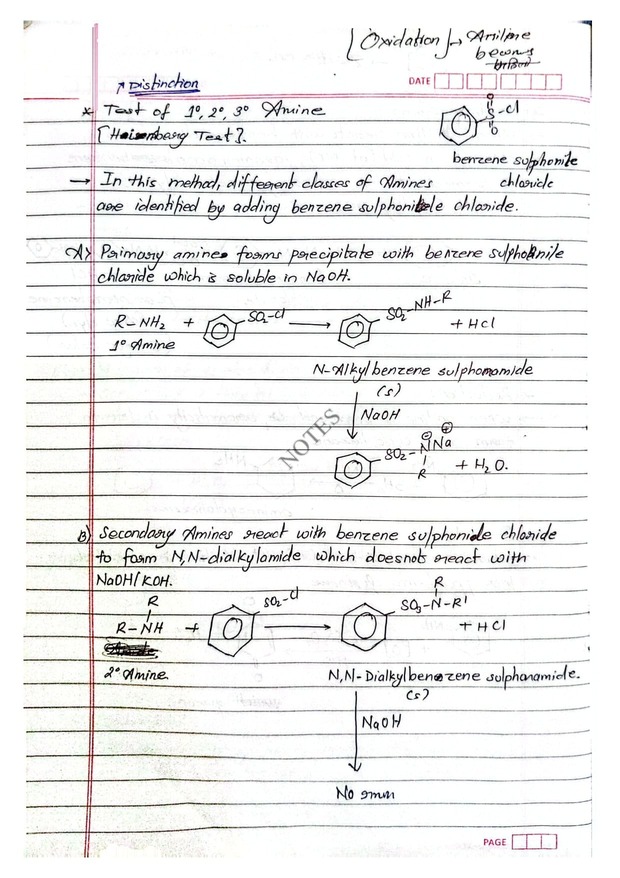 [Oxidation] → Aniline
becomes
DATE
↗ Distinction
* Test of 1°, 2°, 3° Amine
[Heisenbarg Test].
O
S-Cl
O
benzene sulphonile
chloride
→ In this method, different classes of Amines
are identified by adding benzene sulphonile chloride.
A) Primary amine forms precipitate with benzene sulphonile
chloride which is soluble in NaOH.
R-NH2 + SO2-Cl → SO2-NH-R + HCl
1° Amine
N-Alkylbenzene sulphonomide
(s)
NaOH
SO2-N⊖ Na⊕ + H2O.
R
NOTES
B) Secondary Amines react with benzene sulphonide chloride
to form N,N-dialkylamide which doesnot react with
NaOH/KOH.
R
R-NH + SO2-Cl → SO3-N-R' + HCl
R
2° Amine.
N,N-Dialkylbenezene sulphanamide.
(s)
NaOH
No rmn
PAGE